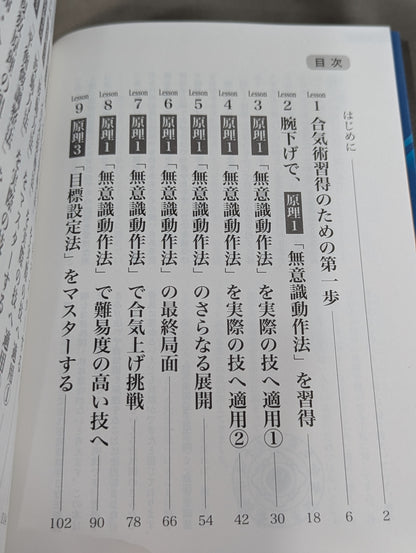 目次
はじめに 2
Lesson 1 合気術習得のための第一歩 6
Lesson 2 腕下げで、原理1「無意識動作法」を習得 18
Lesson 3 原理1「無意識動作法」を実際の技へ適用① 30
Lesson 4 原理1「無意識動作法」を実際の技へ適用② 42
Lesson 5 原理1「無意識動作法」のさらなる展開 54
Lesson 6 原理1「無意識動作法」の最終局面 66
Lesson 7 原理1「無意識動作法」で合気上げ挑戦 78
Lesson 8 原理1「無意識動作法」で難易度の高い技へ 90
Lesson 9 原理3「目標設定法」をマスターする 102